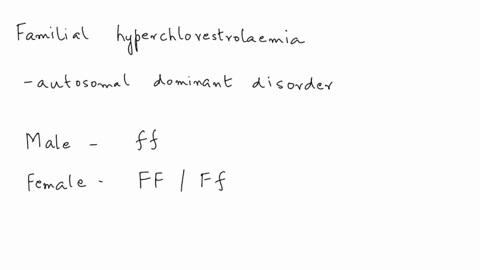 Familial hyperchlorestrolaemia
- autosomal dominant disorder
Male - ff
Female - FF / Ff